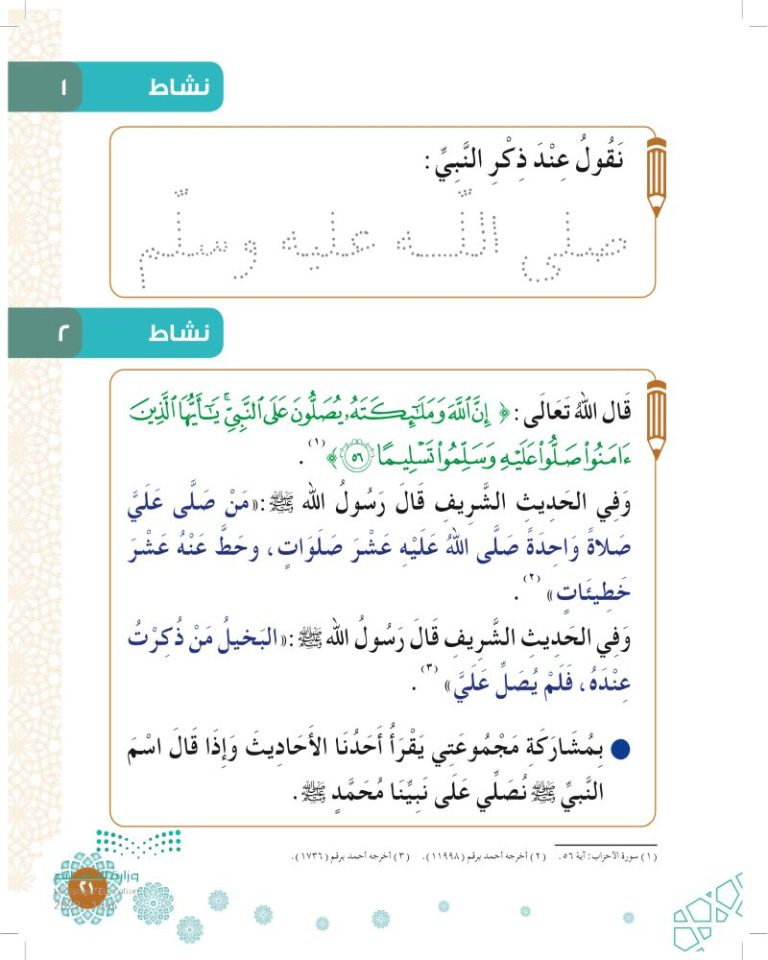 نشاط ١
نَقُولُ عِنْدَ ذِكْرِ النَّبِيِّ:
صلى اللّه عليه وسلّم
نشاط ٢
قَالَ اللهُ تَعَالَى: ﴿ إِنَّ ٱللَّهَ وَمَلَٰٓئِكَتَهُۥ يُصَلُّونَ عَلَى ٱلنَّبِيِّۚ يَٰٓأَيُّهَا ٱلَّذِينَ
ءَامَنُوا۟ صَلُّوا۟ عَلَيْهِ وَسَلِّمُوا۟ تَسْلِيمًا ٥٦ ﴾ (١).
وَفِي الحَدِيثِ الشَّرِيفِ قَالَ رَسُولُ الله ﷺ: «مَنْ صَلَّى عَلَيَّ
صَلاةً وَاحِدَةً صَلَّى اللهُ عَلَيْهِ عَشْرَ صَلَوَاتٍ، وحَطَّ عَنْهُ عَشْرَ
خَطِيئَاتٍ» (٢).
وَفِي الحَدِيثِ الشَّرِيفِ قَالَ رَسُولُ الله ﷺ: «البَخيلُ مَنْ ذُكِرْتُ
عِنْدَهُ، فَلَمْ يُصَلِّ عَلَيَّ» (٣).
● بِمُشَارَكَةِ مَجْمُوعَتِي يَقْرَأُ أَحَدُنَا الأَحَادِيثَ وَإِذَا قَالَ اسْمَ
النَّبِيِّ ﷺ نُصَلِّي عَلَى نَبِيِّنَا مُحَمَّدٍ ﷺ.
(١) سورة الأحزاب: آية ٥٦. (٢) أخرجه أحمد برقم (١١٩٩٨). (٣) أخرجه أحمد برقم (١٧٣٦).
٢١